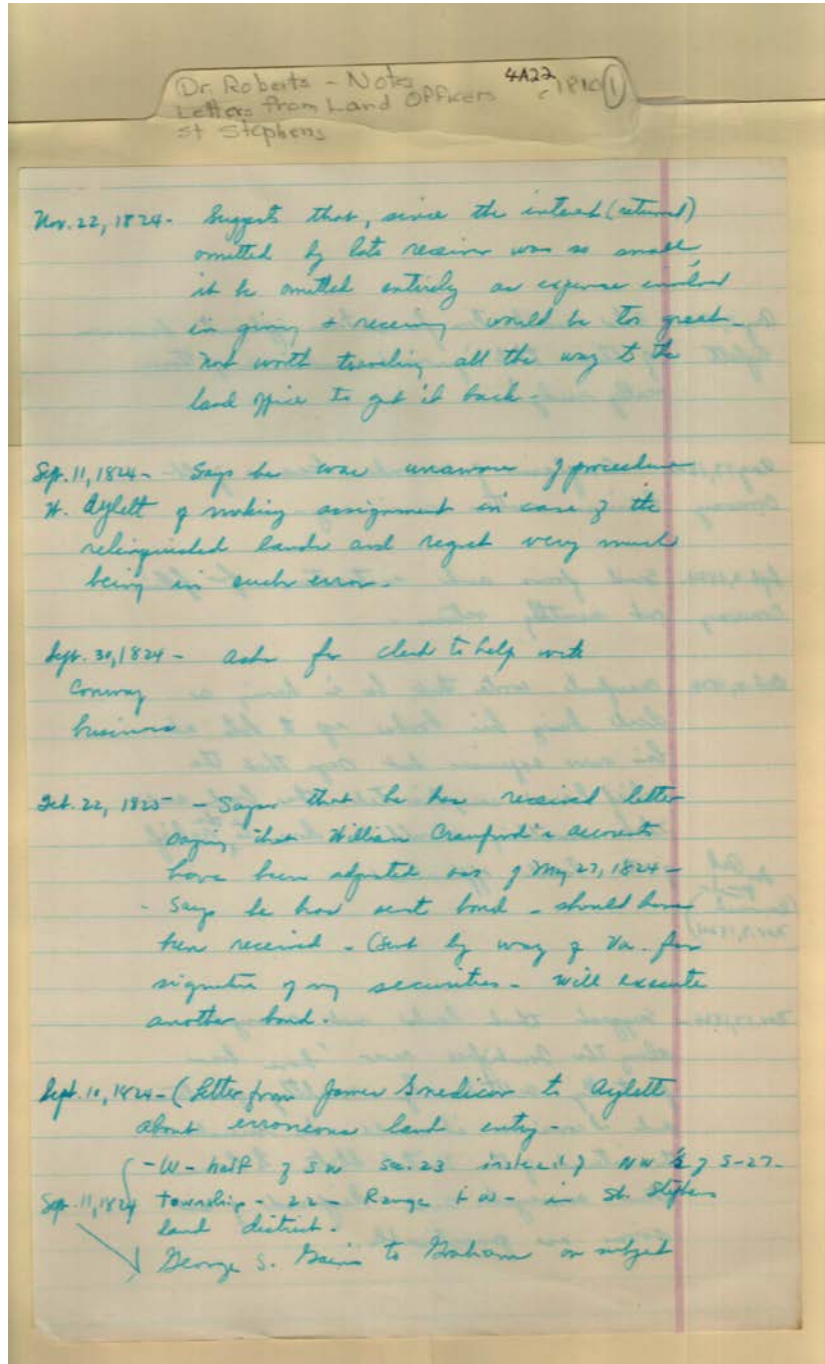 Dr. Roberts - Notes 4A22 c 1810 1
Letters from Land Officers
St Stephens
Nov. 22, 1824 - Suggests that, since the interest (returned)
omitted by late receiver was so small,
it be omitted entirely as expense involved
in giving + receiving would be too great -
Not worth traveling all the way to the
land office to get it back -
Sep. 11, 1824 - Says he was unaware of procedure
W. Aylett of making assignment in case of the
relinquished lands and regret very much
being in such error -
Sept. 30, 1824 - asks for clerk to help with
Conway
business
Feb. 22, 1825 - Says that he has received letter
saying that William Crawford's accounts
have been adjusted as of May 27, 1824 -
- Says he has sent bond - should have
been received - (Sent by way of Va. for
signature of my securities - will execute
another bond.
Sept. 10, 1824 - (Letter from James Snedicor to Aylett
about erroneous land entry -
- W - half of SW Sec. 23 instead of NW of S-27 -
Sep. 11, 1824 township - 22 - Range W - in St. Stephens
land district -
George S. Gains to Graham on subject